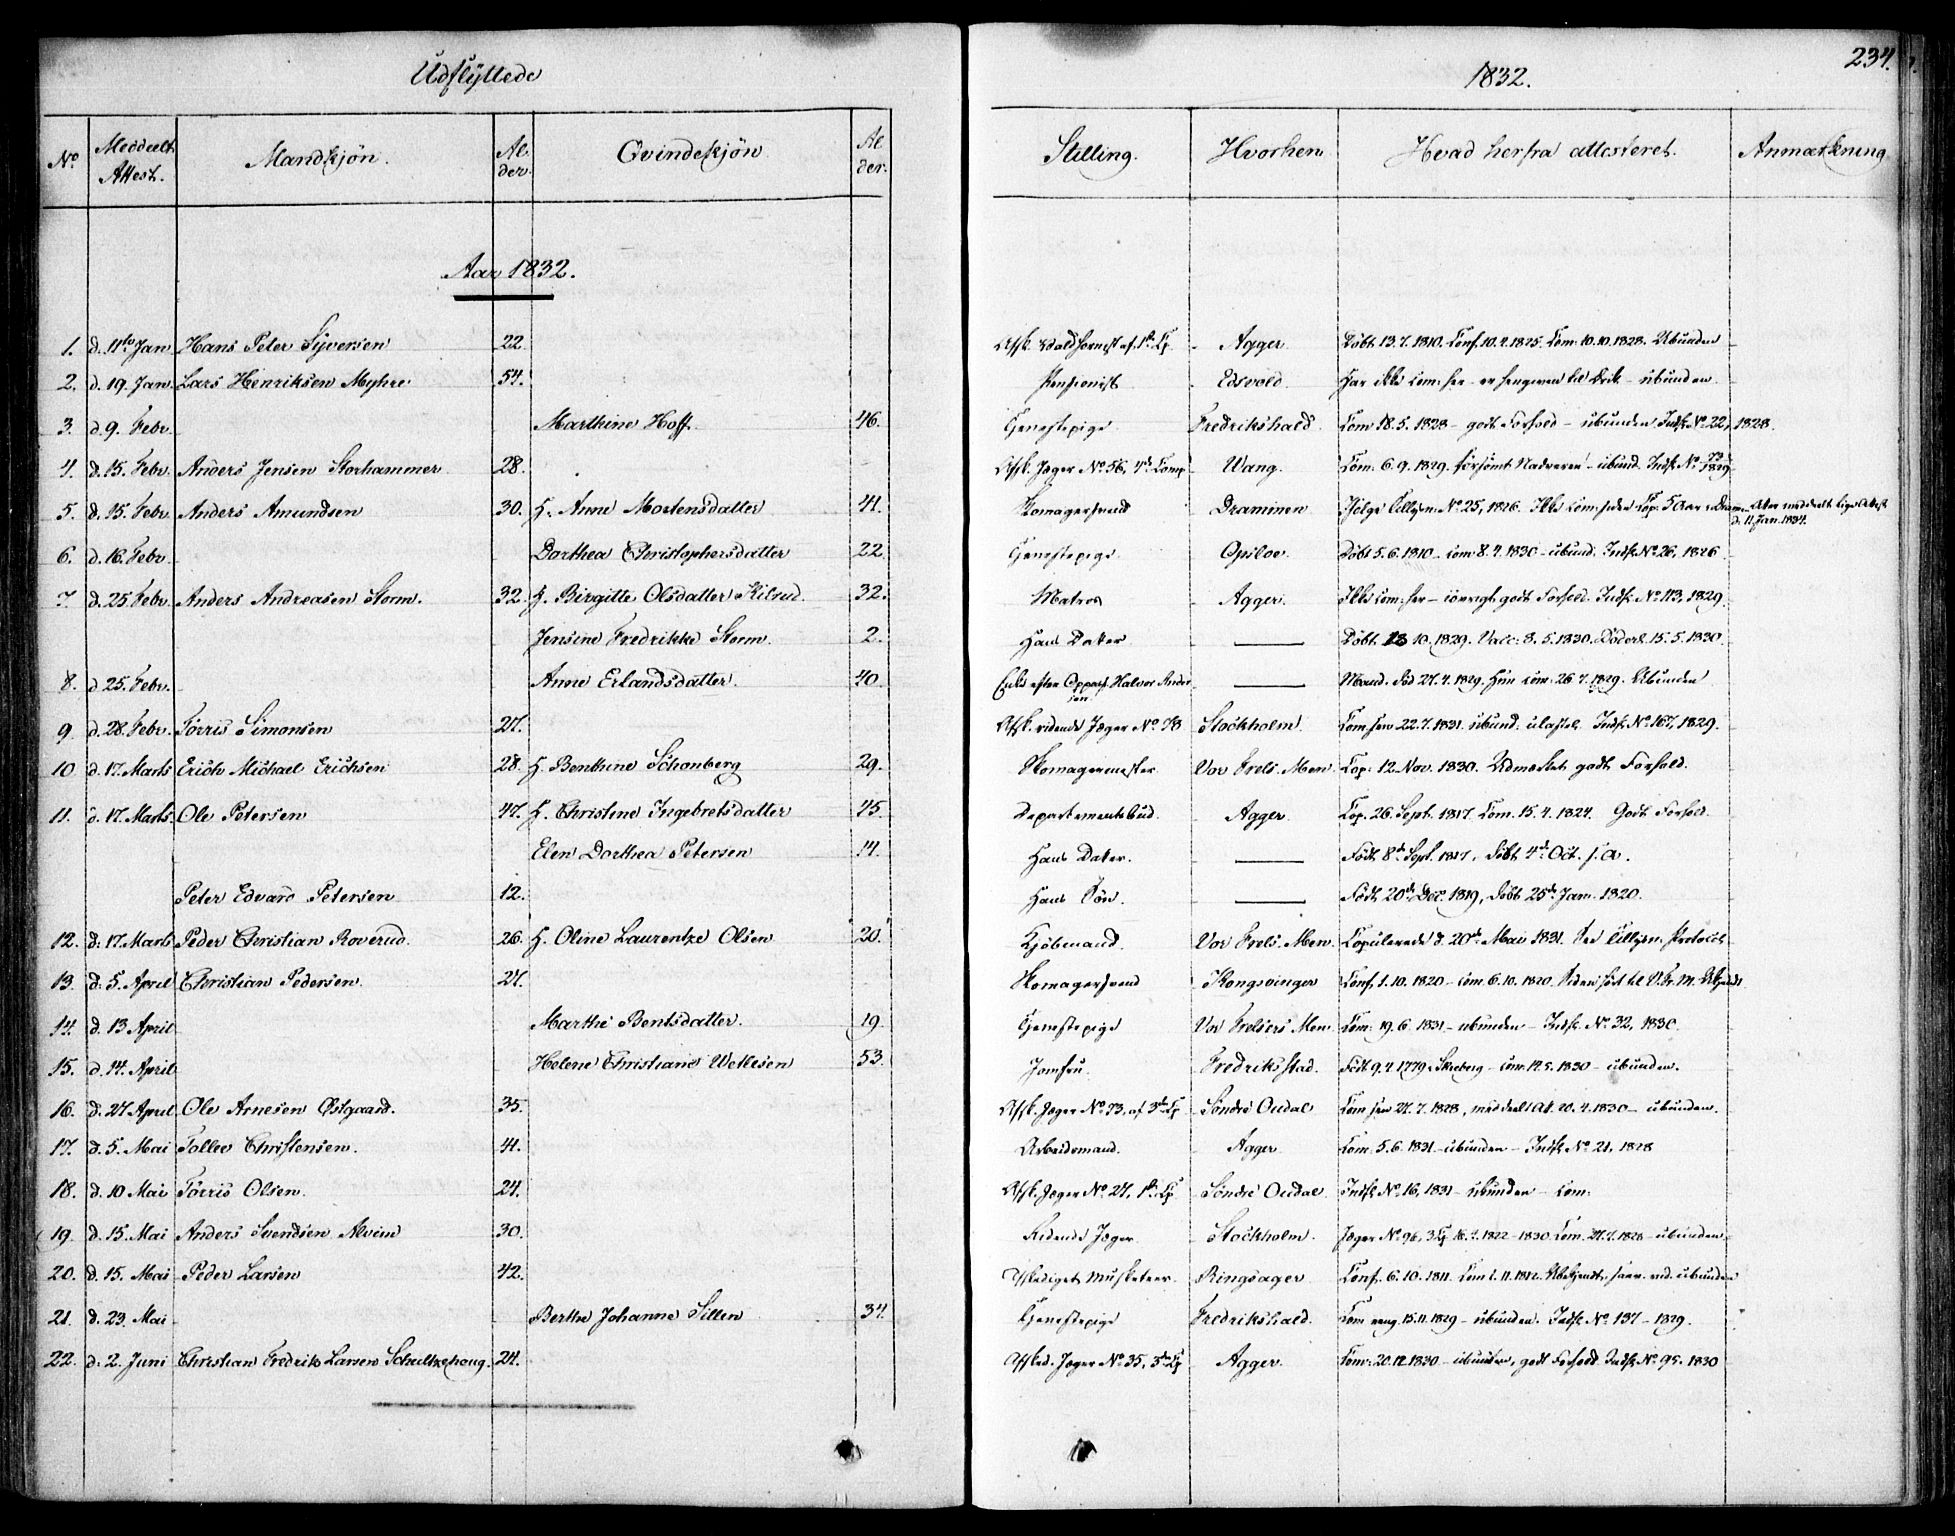 Udflyttede
1832.
234.
No. Meddeelt Attest. Mandkjön. Alder. Qvindekjön Alder. Stilling. Hvorhen Hvad herfra attesteret. Anmærkning
Aar 1832.
1. d. 11te Jan Hans Peter Syversen 22. Afsk. Valdhornist af 1ste Cp. Agger Döbt 13.7.1810. Conf. 10.4.1825. Com. 10.10.1828. Ubunden
2. d. 19. Jan. Lars Henriksen Myhre 54. Pensionist Edsvold Har ikke com: her - er hengiven til Drik - ubunden
3. d. 9. Febr. Marthine Hoff. 46. Tjenestepige Fredrikshald Com 18.5.1828 - godt Forhold - ubunden Indf. No. 22, 1828.
4. d. 15. Febr. Anders Jensen Storhammer 28. Afsk. Jæger No. 56, 4de Comp Wang. Com: 6.9.1829. forsömt Nadveren - ubund. Indf. No. 1829
5. d. 15. Febr. Anders Amundsen 30. H. Anne Mortensdatter 41. Skomagersvend Drammen Ifölge No. 25, 1826. Ikke com: siden Cop. 5 Aar i Dram d. 11 Jan. 1834.
6. d. 16. Febr. Dorthea Christophersdatter 22. Tjenestepige Opsloe Döbt 5.6.1810 - com 8.4.1830 - ubund. Indf. No. 26, 1826
7. d. 25. Febr. Anders Andreasen Storm. 32. H. Birgitte Olsdatter Kilsud. 32. Matros Agger. Ikke com: her - iövrigt godt Forhold. Indf. No. 113, 1829.
Jensine Fredrikke Storm. 2. Hans Datter — Döbt 13 10. 1829. Vacc: 8.5.1830. 15.5.1830
8. d 25. Febr. Anne Erlandsdatter. 40. Enke efter Oppass. Halvor Andersen — Mand. död 27.4.1829. Hun com: 26 7. 1829. Ubunden
9 d. 28. Febr. Torris Simonsen 27. Afsk. ridende Jæger No. 78 Stockholm Com her 22.7.1831. ubund. ulastel. Indf. No. 167, 1829.
10 d. 17. Marts Erich Michael Erichsen 28. H. Benthine Schonberg 29. Skomagermester Vor Frels. Men. Cop: 12. Nov. 1830. Udmærket godt Forhold.
11. d. 17. Marts. Ole Petersen 47. H. Christine Ingebretsdatter 45. Departementsbud. Agger Cop. 26. Sept. 1817 Com. 15.4.1824. Godt Forhold.
Elen Dorthea Petersen 14. Hans Datter. — Födt 8de Sept. 1817, döbt 4de Oct. s. a.
Peter Edvard Petersen 12. Hans Sön. — Födt 20de Dec. 1819, döbt 25de Jan. 1820.
12. d. 17. Marts Peder Christian Roverud. 26. H. Oline Laurentze Olsen 20. Kjöbmand. Vor Frels. Men. Copulerede d. 20de Mai 1831. Se Protocol
13. d. 5. April Christian Pedersen. 27. Skomagersvend Kongsvinger Conf. 1.10.1820 - com. 6.10.1820
14. d. 13 April Marthe Bentsdatter. 19. Tjenestepige Vor Frelsers Men Com: 19.6.1831 - ubunden - Indf. No. 32, 1830.
15. d. 14. April Helene Christiane Wettesen 53. Jomfru. Fredriksstad. Födt 9.4 1779 i - com. 12.5.1830 - ubunden.
16. d. 27 April Ole Arnesen Østgaard. 35. Afsk. Jæger No. 73. af 3de Cp Söndre Oudal Com her 27.7.1828, meddeelt At. 20.4.1830 - ubunden.
17. d. 5. Mai Tollev Christensen. 41. Arbeidsmand. Agger Com. 5.6.1831 - ubunden - Indf. No. 21, 1828
18. d. 10 Mai Torris Olsen. 24. Afsk. Jæger No. 27, 1ste Cp. Söndre Oudal Indf. No. 16, 1831 - ubunden - com:
19. d. 15. Mai Anders Svendsen Alvim 30. Ridende Jæger Stockholm. Jæger No. 96, 3 Cp 16.7.1822 - 1830 Com. 27.7.1828 - ubunden.
20. d. 15. Mai Peder Larsen 42. Afskediget Musketeer. Ringsager Conf. 6.10.1811. Com 1.11.1812. ubunden
21. d. 23. Mai Berthe Johanne Sillen 34. Tjenestepige Fredrikshald. Com 15.11.1829 - ubunden. Indf. No. 137 - 1829.
22. d. 2. Juni Christian Fredrik Larsen Schultzehoug. 24. Afsked. Jæger No. 35, 3de Cp Agger. Com: 20.12.1830 - ubunden, godt Forhold Indf. No. 95. 1830